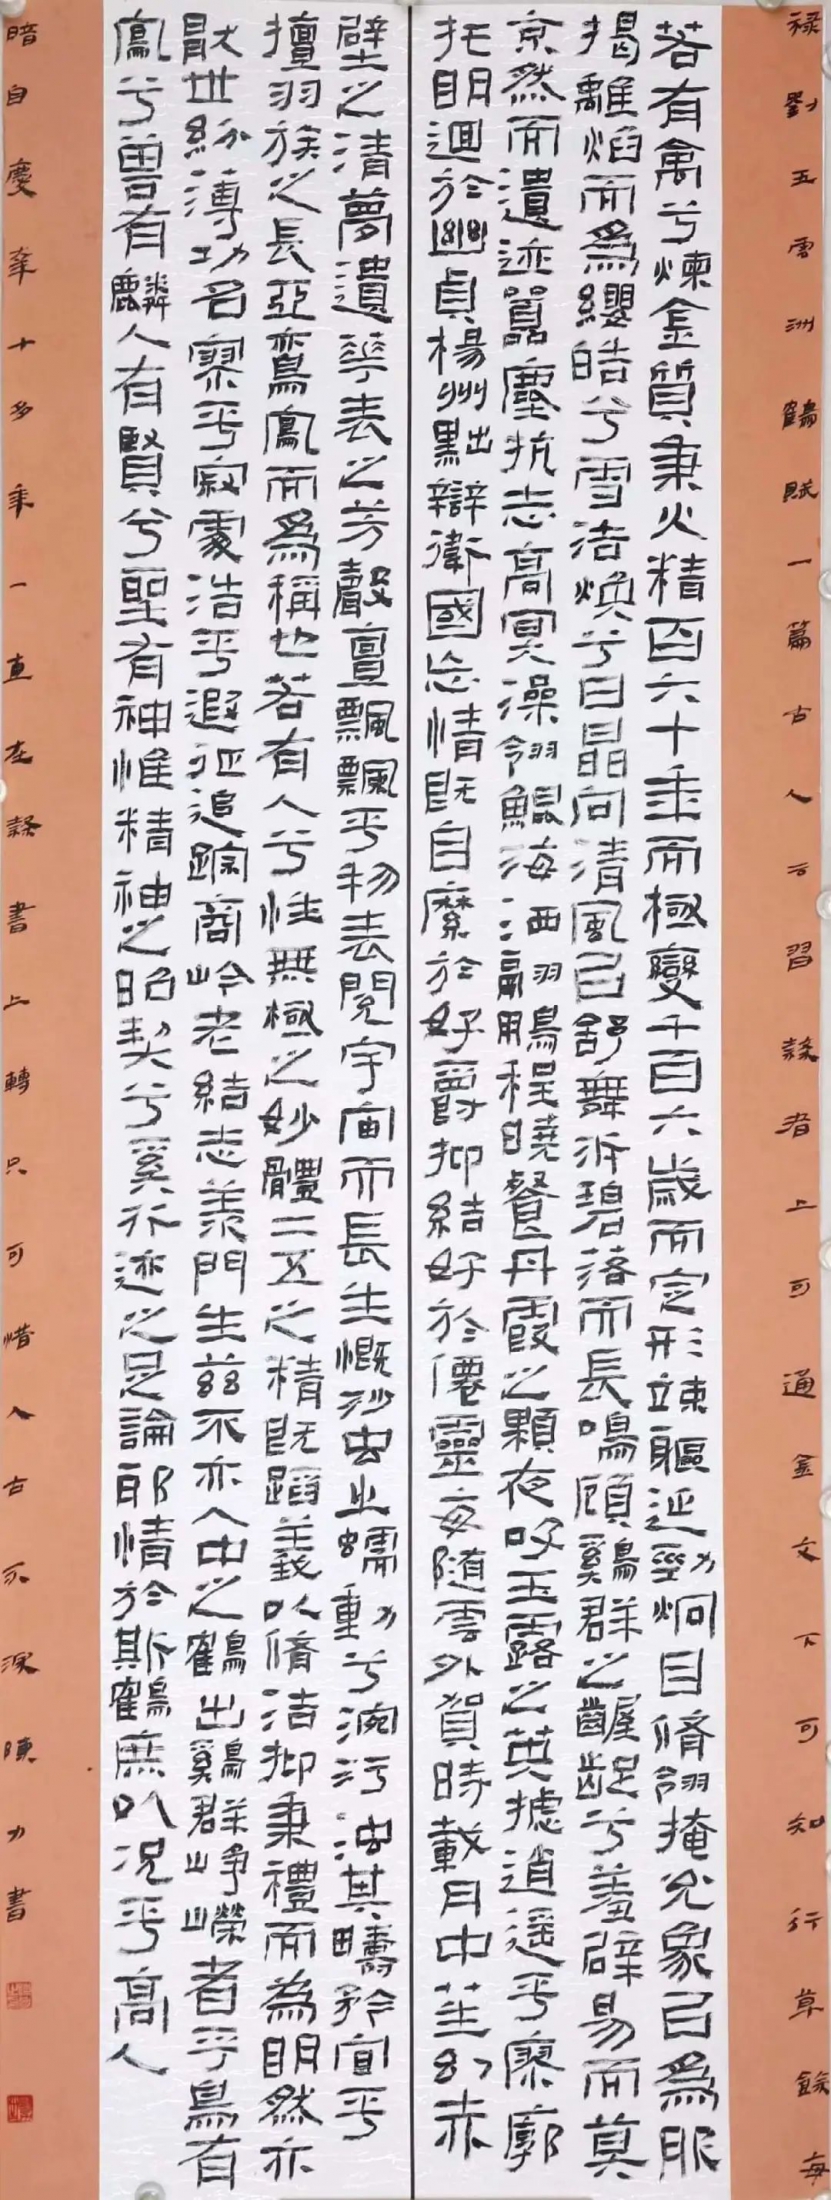 祿劉五雲洲鶴賦一篇古人云習隸者上可通金文下可知行草餘每
若有禽兮煉金質秉火精百六十年而極變千百六歲而定形竦軀延勁炯目脩翎掩兌象已為服
揭離焰而為纓皓兮雪潔煥兮日晶向清風已舒舞泝碧落而長鳴顧鷄群之齷齪兮羞辟易而莫
京然而遺迹囂塵抗志高冥澡翎鯤海洒羽鵬程曉餐丹霞之顆夜吸玉露之英攄逍遥乎寥廓
托明迴於幽貞楊州點出辯衛國忘情既自縻於好爵抑結好於僊靈每隨雲外賀時載月中笙幻赤
壁之清夢遺華表之芳聲亶飄飄乎物表閱宇宙而長生慨沙虫之蠕動兮涴污浊其疇矜宜乎
擅羽族之長亞鸞鳳而為稱也若有人兮性無極之妙體二五之精既蹈義以脩洁抑秉禮而為明然亦
厭世紛薄功名寥乎寂處浩乎遐征追踪商岭老結志羨門生兹不亦人中之鶴出鷄群之崢嶸者乎鳥有
鳳兮獸有麟人有賢兮聖有神惟精神之昭契兮奚形迹之足論耶情於斯鶴庶以况乎高人
暗自慶幸十多年一直在隸書上轉只可惜入古不深陳力書